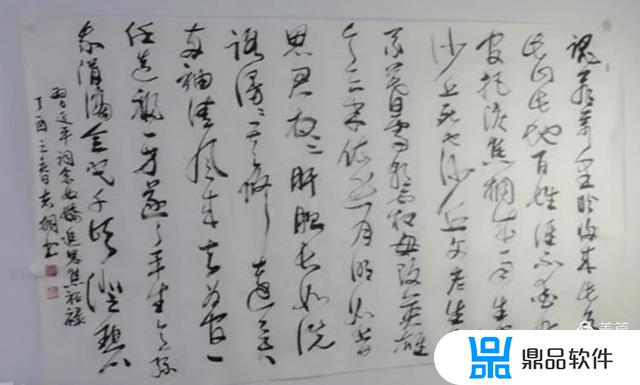 魂飞万里盼归来此水
此山此地百姓谁不爱好
官把泪焦桐成雨生
沙丘死也沙丘父老生
死系暮雪朝霜毋改英雄
意气依然月明如昔
思君夜夜肝胆长如洗
路漫漫其修远矣
两袖清风来去为官一
任造福一方遂了平生意绿
我涓滴会它千顷澄碧
习近平词念奴娇追思焦裕禄
丁酉三春书
美篇
鼎品软件